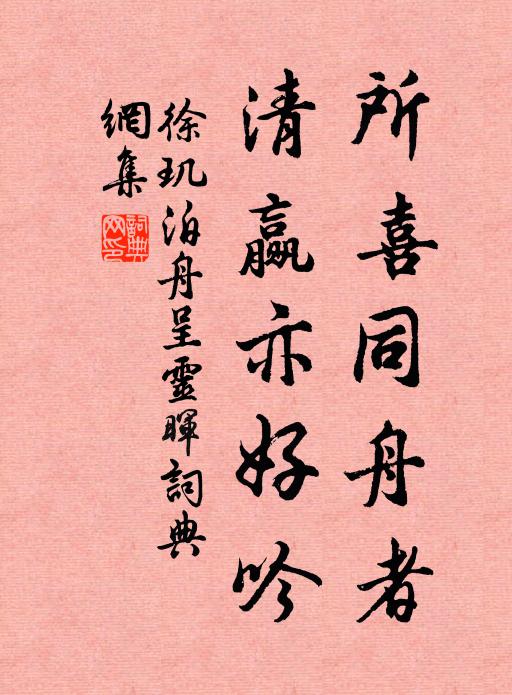 所喜同舟者
清羸亦好吟
徐玑泊舟呈靈暉詞典
網集
詞典網印